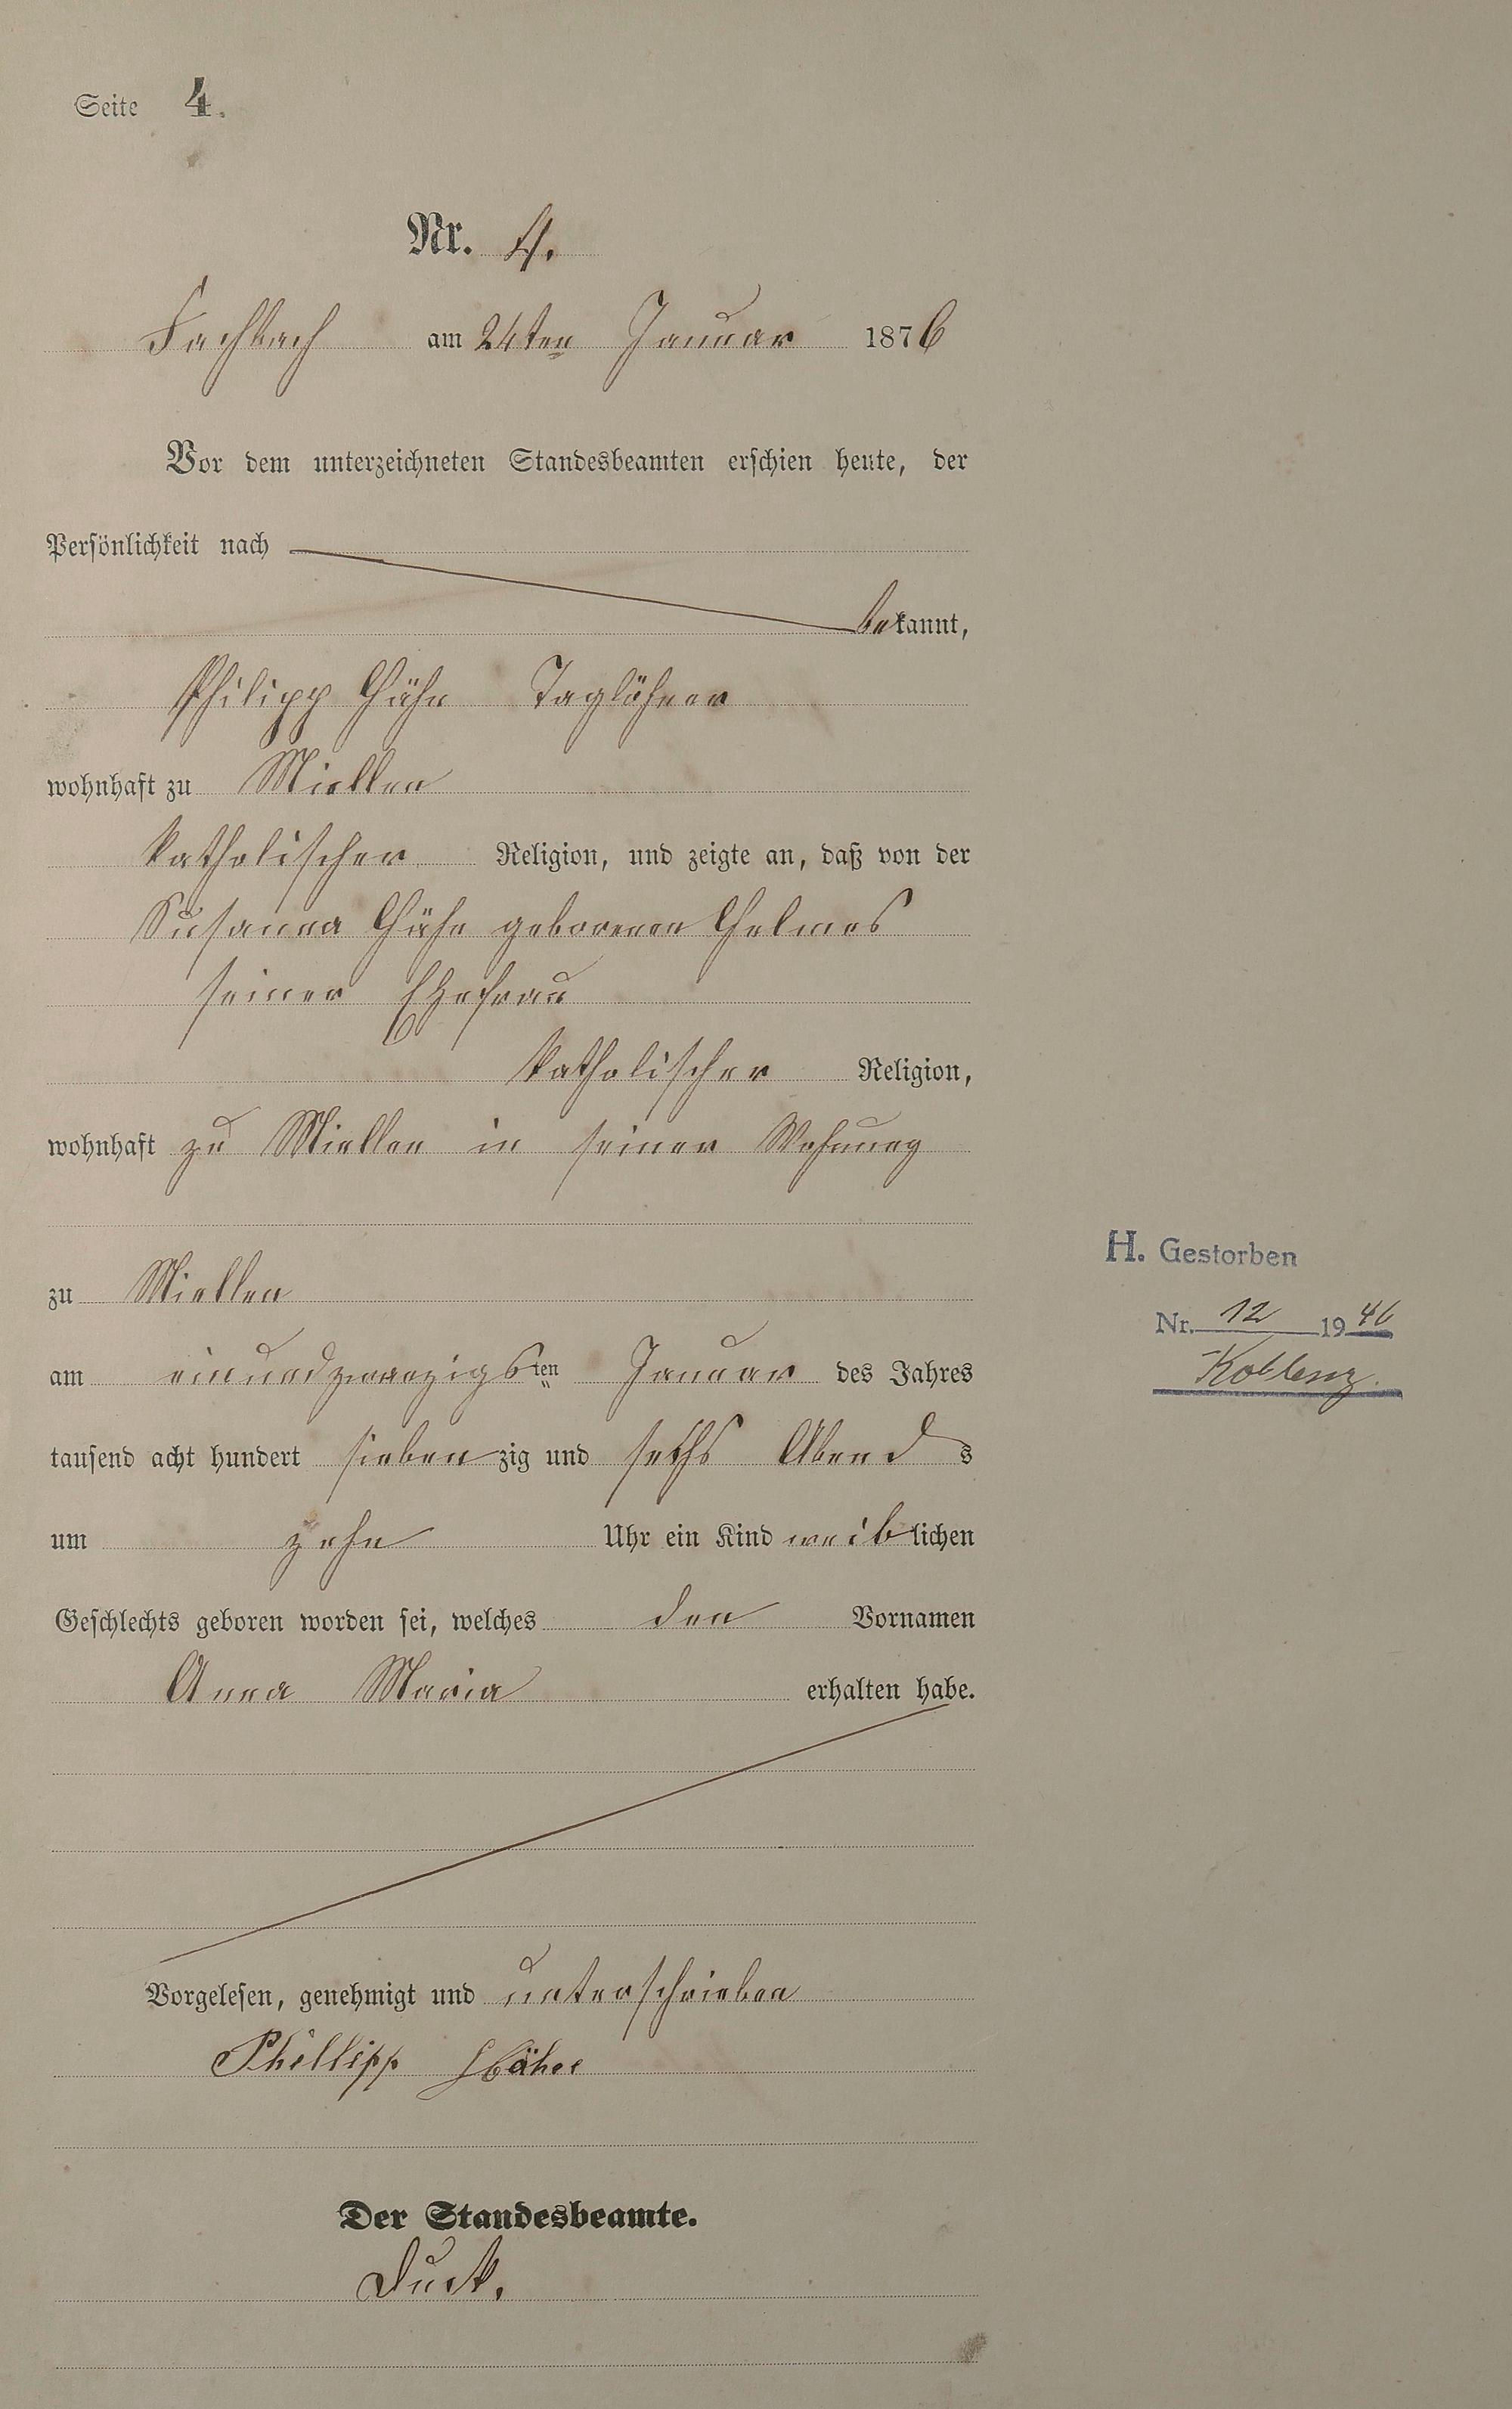 Seite 4.
Nr. 4.
Fachbach am 24ten Januar 1876
Vor dem unterzeichneten Standesbeamten erschien heute, der
Persönlichkeit nach
bekannt,
Philipp Hähn Taglöhner
wohnhaft zu Miellen
katholischer Religion, und zeigte an, daß von der
Susanna Hähn geborenen Helmes
seiner Ehefrau
katholischer Religion,
wohnhaft zu Miellen in seiner Wohnung
zu Miellen
am einundzwanzigsten Januar des Jahres
tausend acht hundert siebenzig und sechs Abends
um zehn Uhr ein Kind weiblichen
Geschlechts geboren worden sei, welches den Vornamen
Anna Maria erhalten habe.
Vorgelesen, genehmigt und unterschrieben
Phillipp
Der Standesbeamte.
H. Gestorben
Nr. 12 1946
Koblenz.